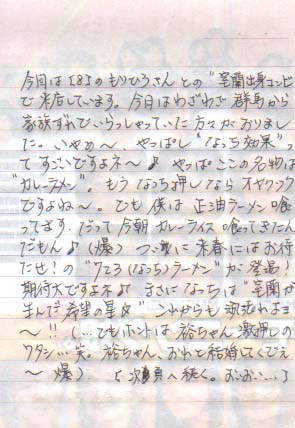 今回は I&Iのもりひろさんとの "室蘭出身コンビ"
で来店しています。今日はわざわざ群馬から
家族ずれでいらっしゃっていた方々がおりまし
た。いやぁ〜、やっぱし"なっち効果"っ
てすごいですよネ〜♪ やっぱここの名物は
"カレーラーメン"。もうなっち押しならオヤクソク
ですよね〜。でも僕は正油ラーメン喰
ってます。だって今朝カレーライス喰ってきたん
だもん♪(爆) ついに来春にはお待
たせ!の"723(なっち)ラーメン"が登場!
期待大ですよネ♪ まさになっちは"室蘭が
生んだ希望の星☆" これからも頑張れよョ
〜!!(…でもホントは裕ちゃん激押しの
ワタシ…笑。裕ちゃん、おれと結婚してくでぇ
〜 爆)。 次頁へ続く。おぉおぉ…